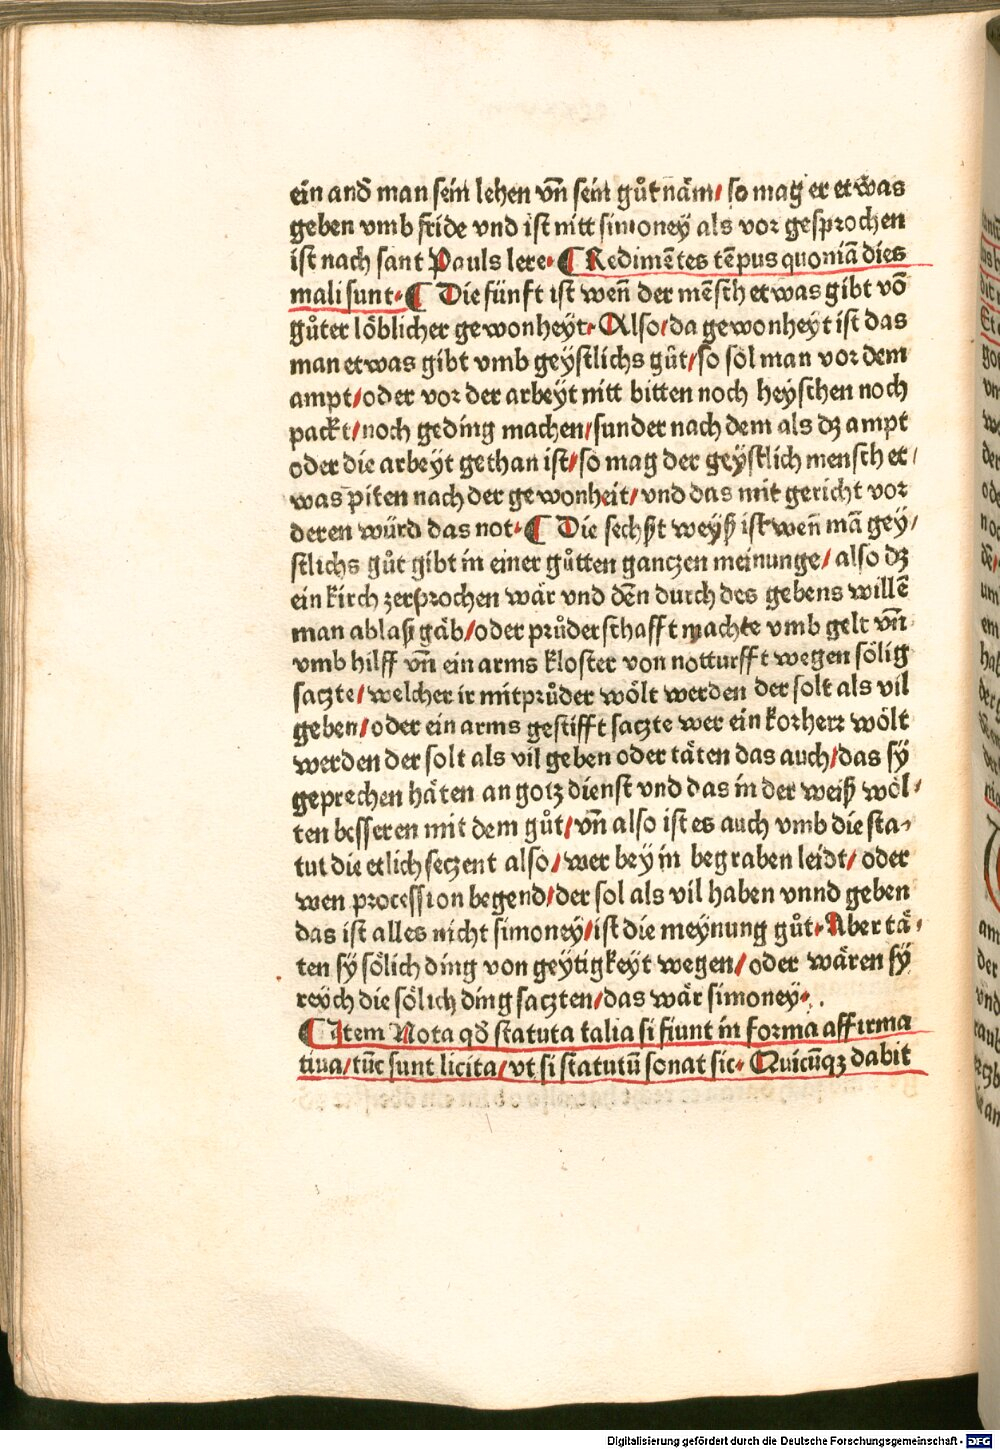 ein and̄ man sein lehen vn̄ sein gůt näm/ so mag er etwas
geben vmb fride vnd ist nitt simoney als vor gesprochen
ist nach sant Pauls lere. ¶ Redimētes tēpus quoniā dies
mali sunt. ¶ Die fünft ist wen̄ der mēsch etwas gibt vō
gůter löblicher gewonheyt. Also/ da gewonheyt ist das
man etwas gibt vmb geystlichs gůt/ so söl man vor dem
ampt/ oder vor der arbeyt nitt bitten noch heyschen noch
packt/ noch geding machen/ sunder nach dem als dz ampt
oder die arbeyt gethan ist/ so mag der geystlich mensch et/
was piten nach der gewonheit/ vnd das mit gericht vor
deren würd das not. ¶ Die sechßt weyß ist wen̄ mā gey/
stlichs gůt gibt in einer gůtten ganczen meinunge/ also dz
ein kirch zerprochen wär vnd dēn durch des gebens willē
man ablaß gäb/ oder průderschafft machte vmb gelt vn̄
vmb hilff vn̄ ein arms kloster von notturfft wegen sölig
saczte/ welcher ir mitprůder wölt werden der solt als vil
geben/ oder ein arms gestifft saczte wer ein korherr wölt
werden der solt als vil geben oder täten das auch/ das sy
geprechen häten an gotz dienst vnd das in der weiß wöl/
ten besseren mit dem gůt/ vn̄ also ist es auch vmb die sta/
tut die etlich seczent also/ wer bey in begraben leidt/ oder
wen procession begend/ der sol als vil haben vnnd geben
das ist alles nicht simoney/ ist die meynung gůt. Aber tä/
ten sy sölich ding von geytigkeyt wegen/ oder wären sy
reych die sölich ding saczten/ das wär simoney.
¶ Item Nota qd̄ statuta talia si fiunt in forma affirma
tiua/ tūc sunt licita/ vt si statutū sonat sic. Quicūqz dabit
Digitalisierung gefördert durch die Deutsche Forschungsgemeinschaft - DFG